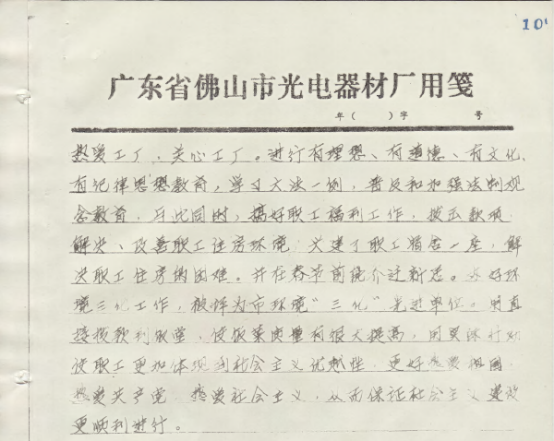 10
广东省佛山市光电器材厂用笺
年( )字 号
热爱工厂,关心工厂。进行有理想、有道德、有文化、
有纪律思想教育,学习大法一例,普及和加强法制观
念教育。与此同时,搞好职工福利工作,拨出款项
解决、改善职工住房环境,又建了职工宿舍一座,解
决职工住房的困难。并在春节前能介迁新居。好环
境三化工作,被评为市环境“三化”先进单位。用直
接投款到饭堂,使饭菜质量有很大提高,用实际行动
使职工更加体现到社会主义优越性,更好热爱祖国
热爱共产党,热爱社会主义,从而保证社会主义建设
更顺利进行。